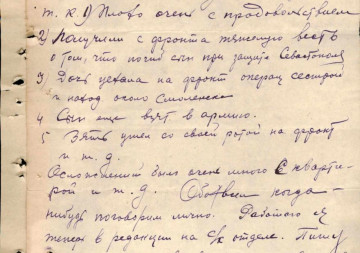 т.к 1) Плохо очень с продовольствием
2) Получили с фронта тяжелую весть
о том, что погиб сын при защите Севастополя
3) Дочь уехала на фронт операц сестрой
и наход около Смоленска
4 Сын еще взят в армию.
5 Зять ушел со своей ротой на фронт
и т. д.
Осложнений было очень много с кварти-
рой и т. д. Обо всем когда-
нибудь поговорим лично. Работаю я
в редакции на с/х отделе. Пишу